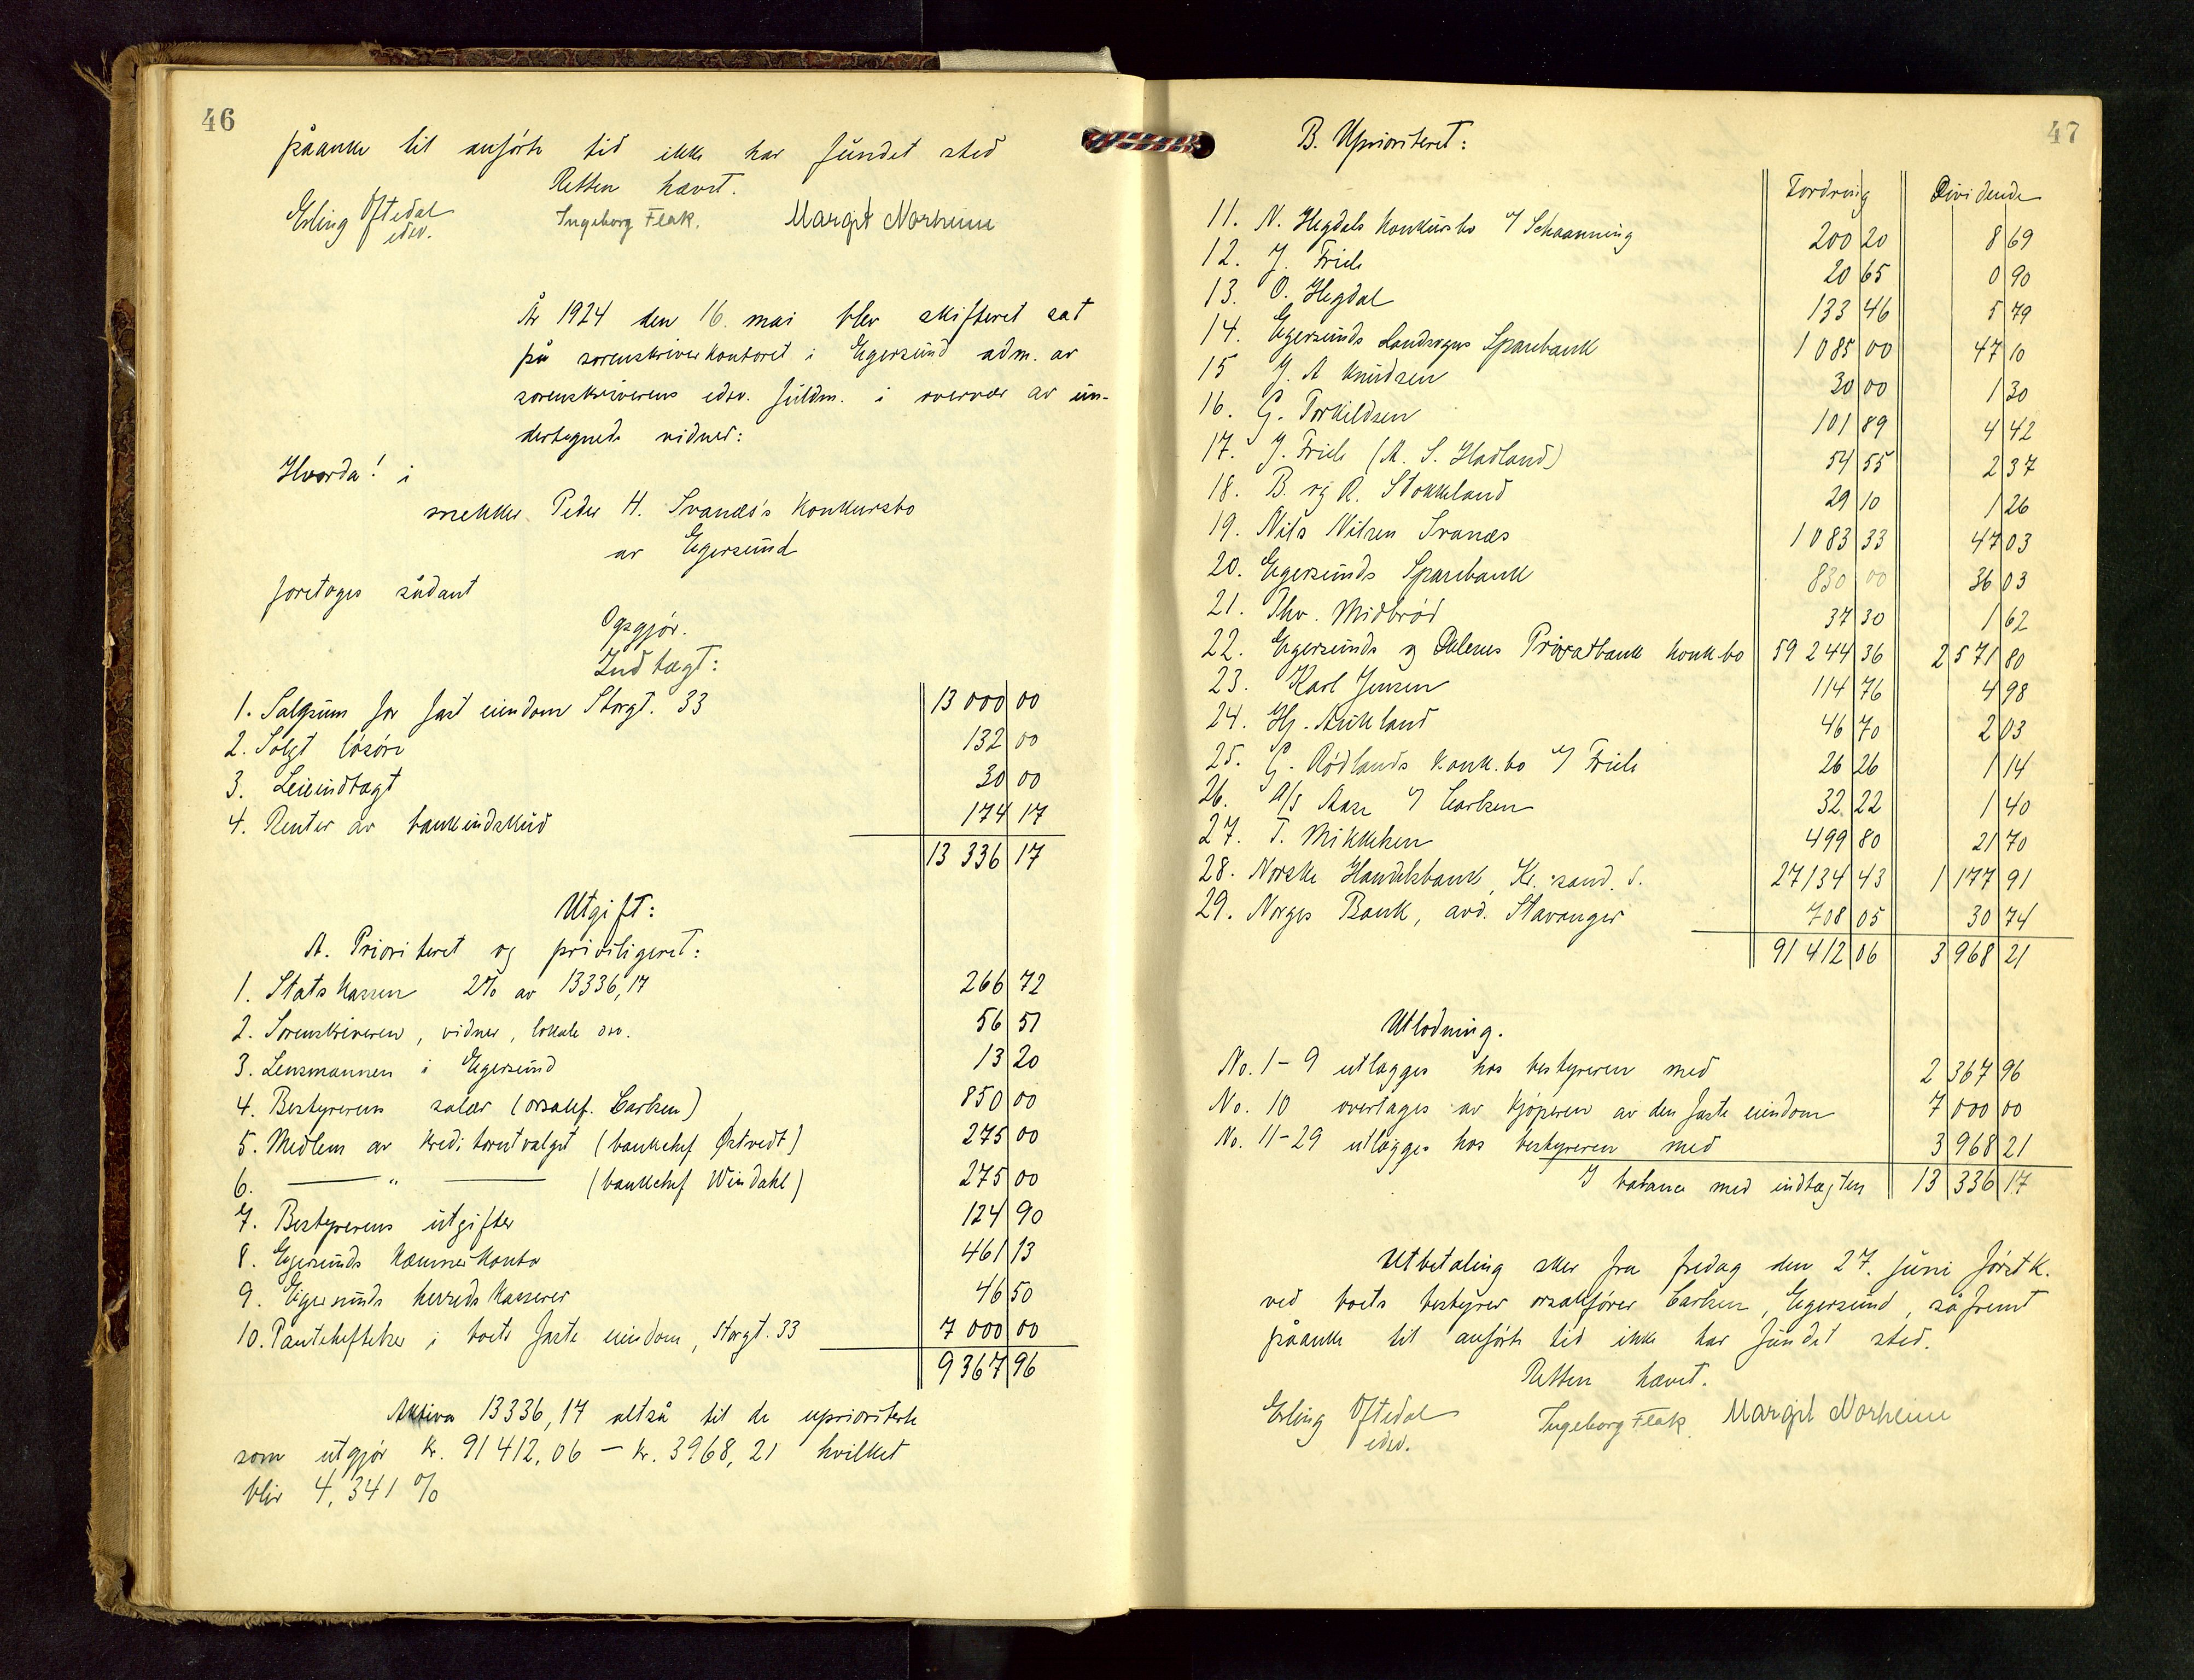 46
påanke til anførte tid ikke har fundet sted
Retten hævet.
Erling Oftedal Ingeborg Fleak. Margit Norheim
edsv.
År 1924 den 16. mai blev skifteret sat
på sorenskriverkontoret i Egersund adm. av
sorenskriverens edsv. fuldm. i overvær av un-
dertegnede vidner:
Hvorda! i
snekker Peder H. Svanæs's konkursbo
av Egersund
foretages sådant
Opgjør.
Indtægt:
1. Salgsum for fast eiendom Storgt. 33 13 000 00
2. Solgt løsøre 132 00
3. Leieindtægt 30 00
4. Renter av bankindskud 174 17
13 336 17
Utgift:
A. Prioritert og priviligeret:
1. Statskassen 2% av 13336,17 266 72
2. Sorenskriveren, vidner, lokale osv. 56 51
3. Lensmannen i Egersund 13 20
4. Bestyrerens salær (orsakf. Carlsen) 850 00
5. Medlem av kreditorutvalget (bankchef Østvedt) 275 00
6. — " — (bankchef Windahl) 275 00
7. Bestyrerens utgifter 124 90
8. Egersunds kæmnerkontor 461 13
9. Eigersunds herredskasserer 46 50
10. Pantehæftelser i boets faste eiendom, Storgt. 33 7 000 00
9 367 96
Aktiva 13336,17 altså til de uprioriterte
som utgjør kr. 91412,06 — kr. 3968,21 hvilket
blir 4,341 %
47
B. Uprioriteret:
Fordring Dividende
11. N. Hegdals konkursbo v/ Schaanning 200 20 8 69
12. J. Friele 20 65 0 90
13. O. Hegdal 133 46 5 79
14. Egersunds Landsogns Sparebank 1 085 00 47 10
15 J. A Knudsen 30 00 1 30
16. G. Torkildsen 101 89 4 42
17. J. Friele (A. S. Hadland) 54 55 2 37
18. B. og R. Stokkeland 29 10 1 26
19. Nils Nilsen Svanæs 1 083 33 47 03
20. Egersunds Sparebank 830 00 36 03
21. Thv. Midbrød 37 30 1 62
22. Egersunds og Dalenes Privatbank konk.bo 59 244 36 2 571 80
23. Karl Jensen 114 76 4 98
24. Hj. Aukland 46 70 2 03
25. G. Rødlands konk.bo v/ Friele 26 26 1 14
26. A/S Aase v/ Carlsen 32 22 1 40
27. T. Mikkelsen 499 80 21 70
28. Norske Handelsbank, Kr.sand. S. 27 134 43 1 177 91
29. Norges Bank, avd. Stavanger 708 05 30 74
91 412 06 3 968 21
Utlodning.
No. 1-9 utlægges hos bestyreren med 2 367 96
No. 10 overtages av kjøperen av den faste eiendom 7 000 00
No. 11-29 utlægges hos bestyreren med 3 968 21
I balance med indtægten 13 336 17
Utbetaling sker fra fredag den 27. juni førstk.
ved boets bestyrer orsakfører Carlsen, Egersund, såfremt
påanke til anførte tid ikke har fundet sted.
Retten hævet.
Erling Oftedal Ingeborg Fleak. Margit Norheim
edsv.